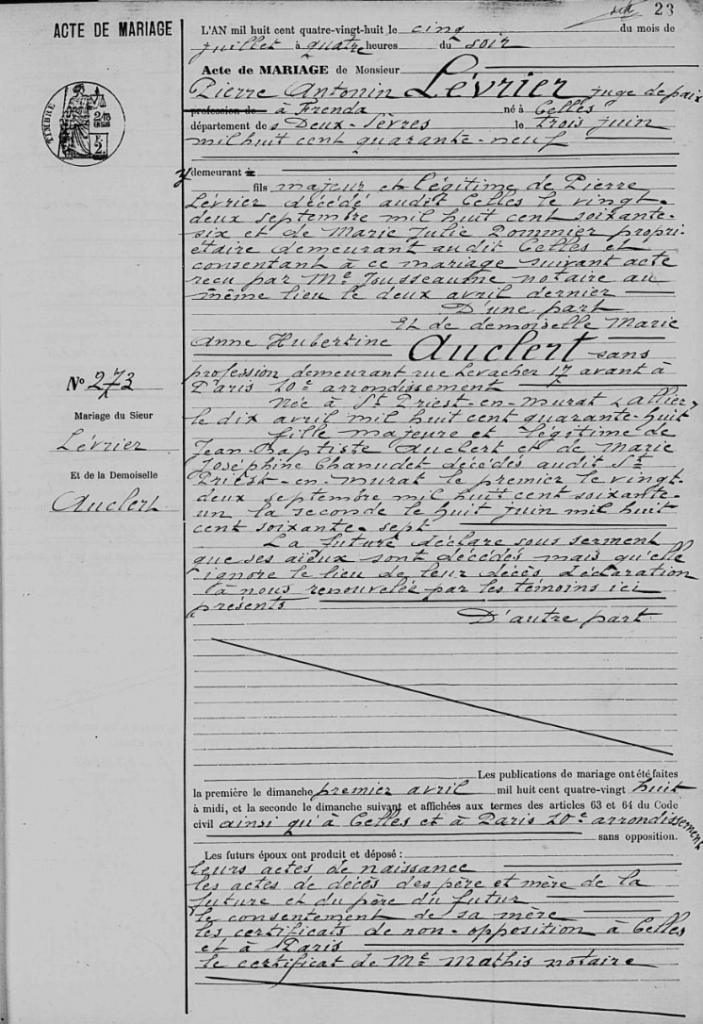 23
ACTE DE MARIAGE
L'AN mil huit cent quatre-vingt-huit le cinq du mois de
juillet à quatre heures du soir
TIMBRE
Acte de MARIAGE de Monsieur Lévrier juge de paix
Pierre Antonin
profession de à Frenda né à Celles
département de s Deux-Sèvres le trois juin
mil huit cent quarante-neuf
y demeurant à
fils majeur et légitime de Pierre
Lévrier décédé audit Celles le vingt-
deux septembre mil huit cent soixante-
six et de Marie Julie Pommier propri-
étaire demeurant audit Celles et
consentant à ce mariage suivant acte
reçu par Me Jousseaume notaire au
même lieu le deux avril dernier
D'une part
Et de demoiselle Marie
Anne Hubertine Auclert sans
profession demeurant rue Levacher 17 avant à
Paris 20e arrondissement
Née à St Priest-en-Murat (Allier)
le dix avril mil huit cent quarante-huit
fille majeure et légitime de
Jean-Baptiste Auclert et de Marie
Joséphine Chanudet décédés audit St
Priest-en-Murat le premier le vingt-
deux septembre mil huit cent soixante-
un la seconde le huit juin mil huit
cent soixante-sept
La future déclare sous serment
que ses aïeux sont décédés mais qu'elle
ignore le lieu de leur décès déclaration
à nous renouvelée par les témoins ici
présents
D'autre part
No 273
Mariage du Sieur
Lévrier
Et de la Demoiselle
Auclert
Les publications de mariage ont été faites
la première le dimanche premier avril mil huit cent quatre-vingt huit
à midi, et la seconde le dimanche suivant et affichées aux termes des articles 63 et 64 du Code
civil ainsi qu'à Celles et à Paris 20e arrondissement
sans opposition.
Les futurs époux ont produit et déposé :
leurs actes de naissance
les actes de décès des père et mère de la
future et du père du futur
le consentement de sa mère
les certificats de non-opposition à Celles
et à Paris
le certificat de Me Mathis notaire